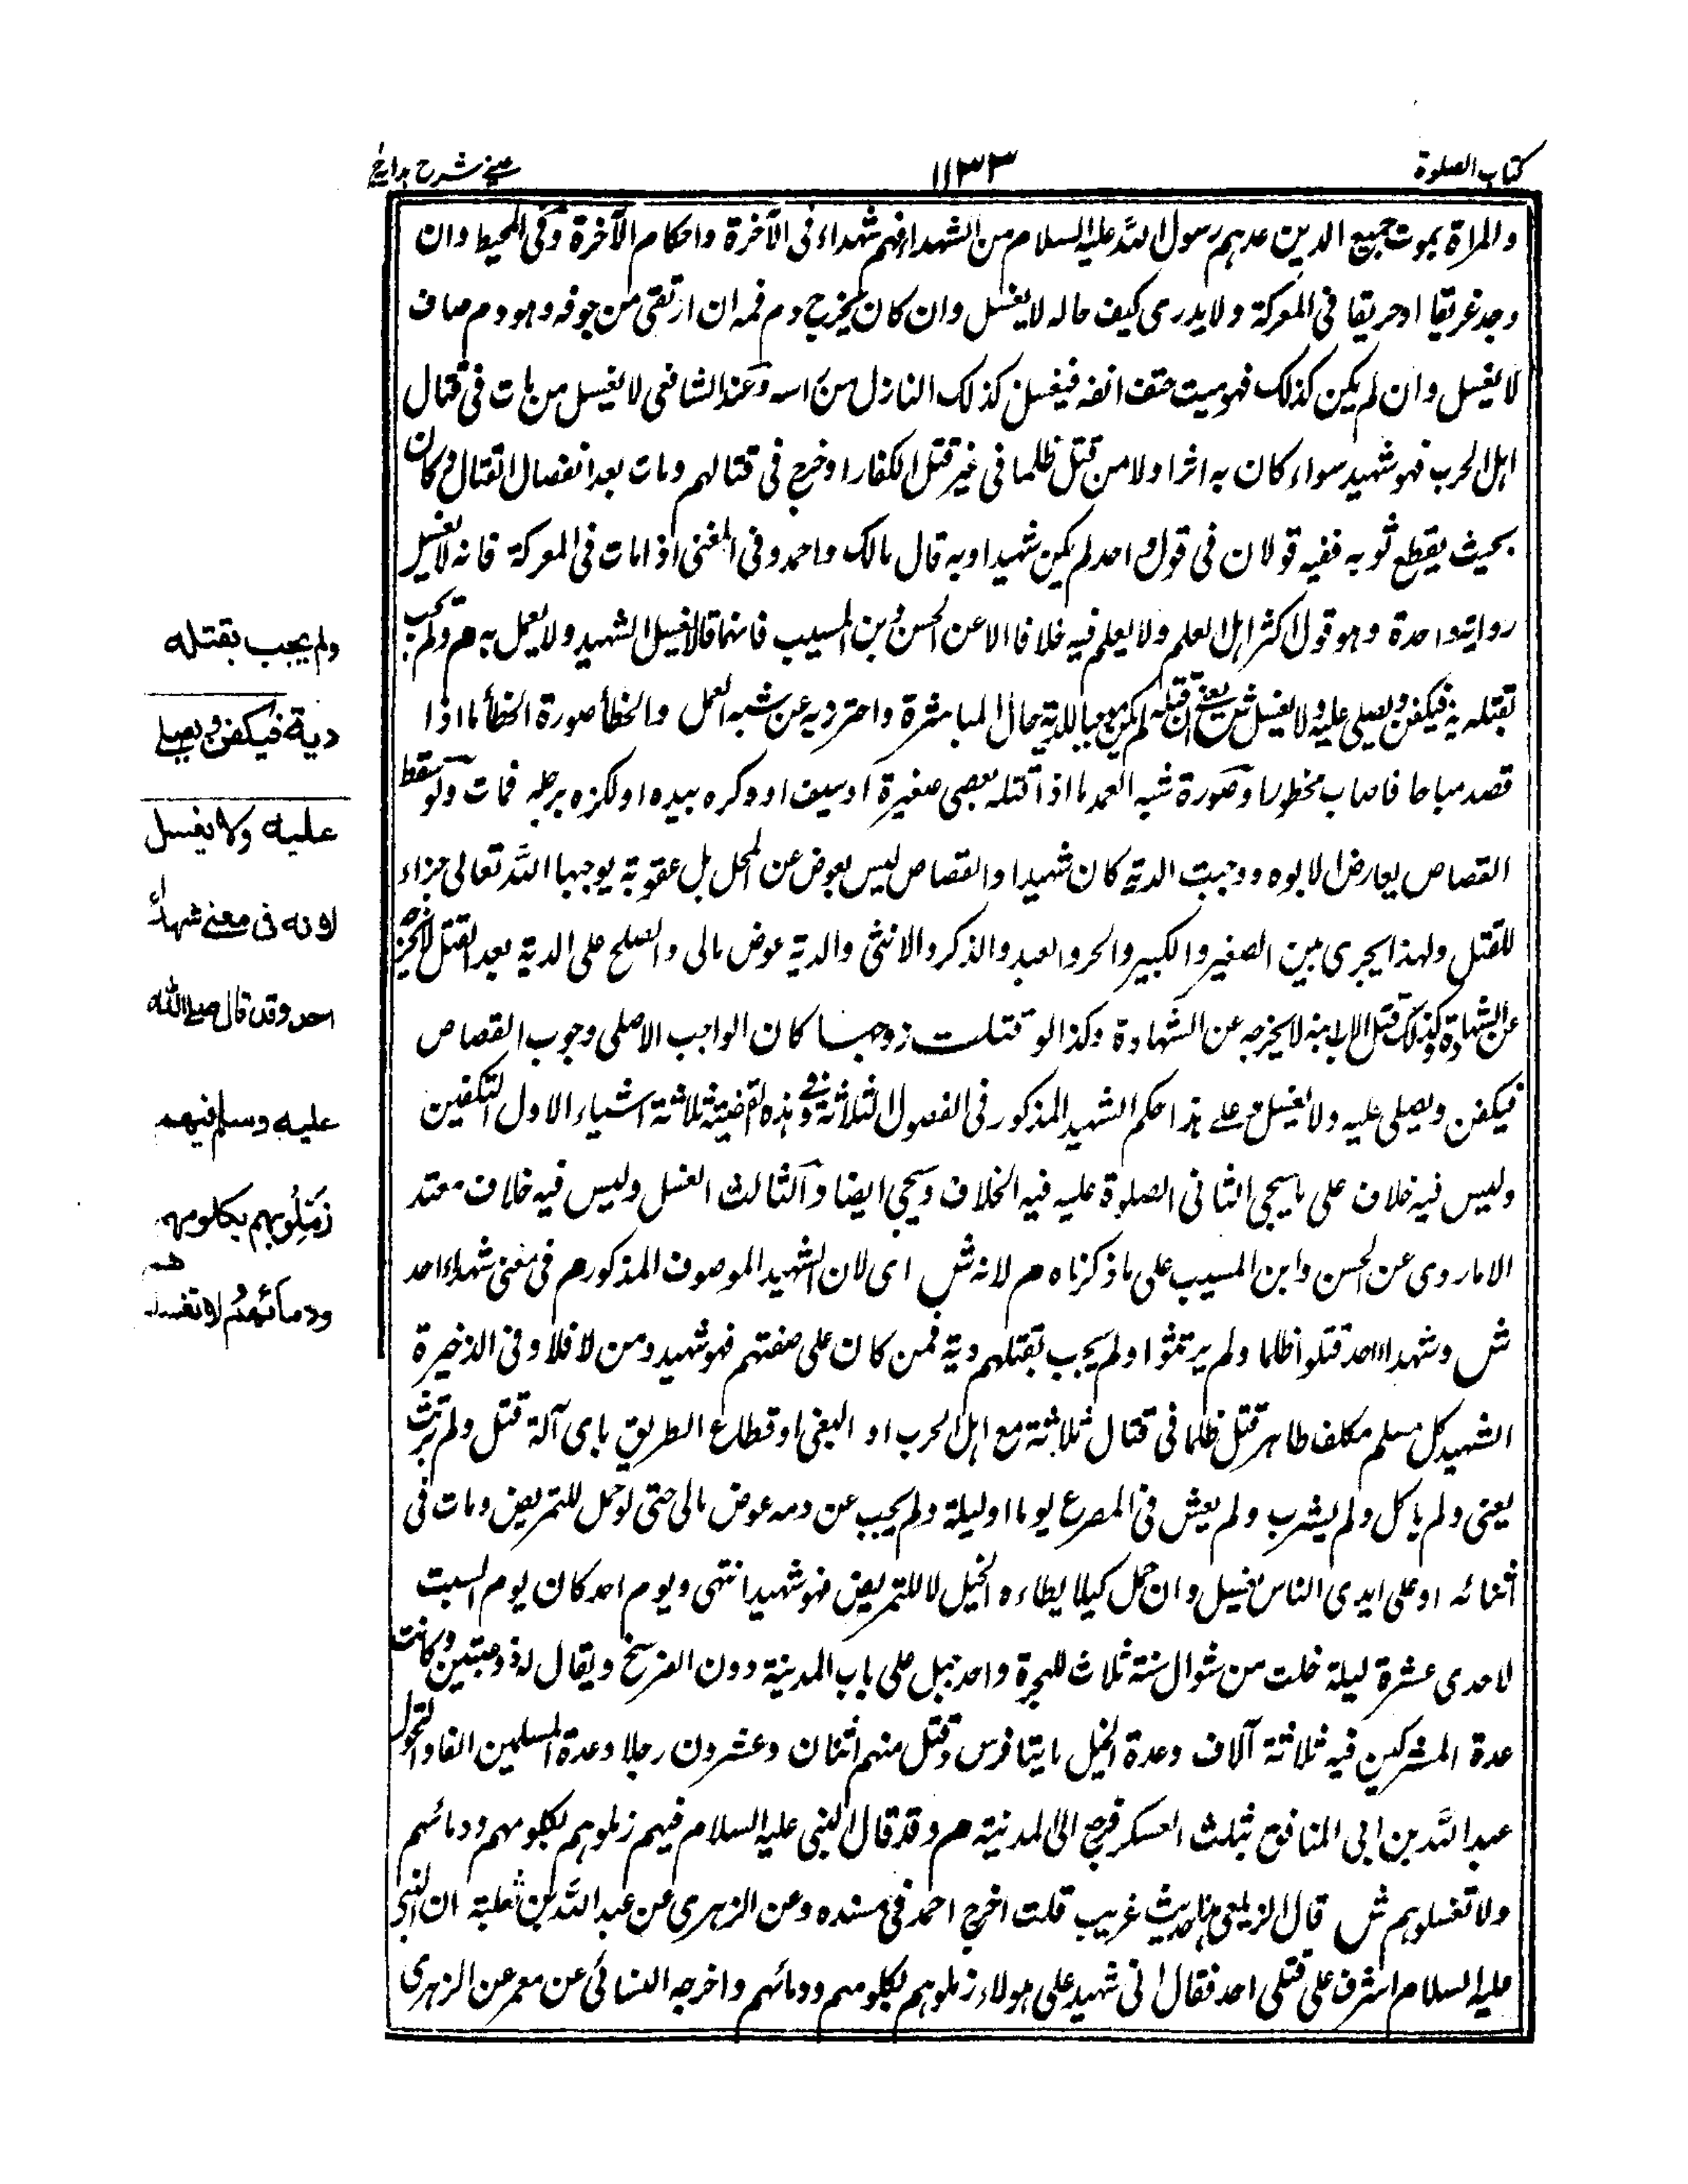 كتاب الصلوة
١١٣٣
عينى شرح هداية
والمراة بموت جميع الذين عدهم رسول الله عليه السلام من الشهداء فهم شهداء فى الآخرة واحكام الآخرة وفى المحيط وان
وجد غريقا او حريقا فى المعركة ولا يدرى كيف حاله لا يغسل وان كان يخرج دم فمه ان ارتقى من جوفه وهو دم صاف
لا يغسل وان لم يكن كذلك فهو ميت حتف انفه فيغسل كذلك النازل من راسه وعند الشافعى لا يغسل من مات فى قتال
اهل الحرب فهو شهيد سواء كان به اثر اولا من قتل ظلما فى غير قتل الكفار او خرج فى قتالهم ومات بعد انفصال القتال وكان
بحيث يقطع ثوبه ففيه قولان فى قول واحد لم يكن شهيدا وبه قال مالك واحمد وفى المغنى اذا مات فى المعركة فانه لا يغسل
رواية واحدة وهو قول اكثر اهل العلم ولا يعلم فيه خلافا الا عن الحسن وبن المسيب فانهما قالا يغسل الشهيد ولا يعمل به م ولم يجب
بقتله دية فيكفن ويصلى عليه ولا يغسل ش يعنى ان قتله لم يكن موجبا للدية حال المباشرة واحترز به عن شبه العمل والخطأ صورة الخطأ ما اذا
قصد مباحا فاصاب مخطورا وصورة شبه العمد ما اذا قتله بعصى صغيرة او سيف او وكره بيده او لكزه برجله فمات ولو سقط
القصاص يعارض لابوه ووجبت الدية كان شهيدا والقصاص ليس بعوض عن المحل بل عقوبة يوجبها الله تعالى جزاء
للقتل ولهذا يجرى بين الصغير والكبير والحر والعبد والذكر والانثى والدية عوض مالى والصلح على الدية بعد القتل لا يخرجه
عن الشهادة وكذلك قتل الاب ابنه لا يخرجه عن الشهادة وكذا لو قتلت زوجها كان الواجب الاصلى وجوب القصاص
فيكفن ويصلى عليه ولا يغسل ش على هذا حكم الشهيد المذكور فى الفصول الثلاثة وفى هذه القضية ثلاثة اشياء الاول التكفين
وليس فيه خلاف على ما سيجى الثانى الصلوة عليه فيه الخلاف وسيجى ايضا والثالث الغسل وليس فيه خلاف معتد
الا ما روى عن الحسن وابن المسيب على ما ذكرناه م لانه ش اى لان الشهيد الموصوف المذكور م فى معنى شهداء احد
ش وشهداء احد قتلوا ظلما ولم يرتثوا ولم يجب بقتلهم دية فمن كان على صفتهم فهو شهيد ومن لا فلا وفى الذخيرة
الشهيد كل مسلم مكلف طاهر قتل ظلما فى قتال ثلاثة مع اهل الحرب او البغى او قطاع الطريق باى آلة قتل ولم يرتث
يعنى ولم ياكل ولم يشرب ولم يعش فى المصرع يوما او ليلة ولم يجب عن دمه عوض مالى حتى لو حمل للتمريض ومات فى
اثنائه او على ايدى الناس غسل وان حمل كيلا يطاءه الخيل لا للتمريض فهو شهيد انتهى ويوم احد كان يوم السبت
لاحدى عشرة ليلة خلت من شوال سنة ثلاث للهجرة واحد جبل على باب المدينة دون الفرسخ ويقال له ذو عينين وكانت
عدة المشركين فيه ثلاثة آلاف وعدة الخيل مايتا فرس وقتل منهم اثنان وعشرون رجلا وعدة المسلمين الفا و
عبد الله بن ابى المنافق بثلث العسكر فرجع الى المدينة م وقد قال النبى عليه السلام فيهم زملوهم بكلومهم ودمائهم
ولا تغسلوهم ش قال الزيلعى هذا حديث غريب قلت اخرج احمد فى مسنده وعن الزهرى عن عبد الله بن ثعلبة ان النبى
عليه السلام اشرف على قتلى احد فقال انى شهيد على هولاء زملوهم بكلومهم ودمائهم واخرجه النسائى عن معمر عن الزهرى
ولم يجب بقتله
دية فيكفن ويصلى
عليه ولا يغسل
لانه فى معنى شهداء
احد وقد قال صلى الله
عليه وسلم فيهم
زَمِّلُوهم بكلومهم
ودمائهم لا تغسلوهم